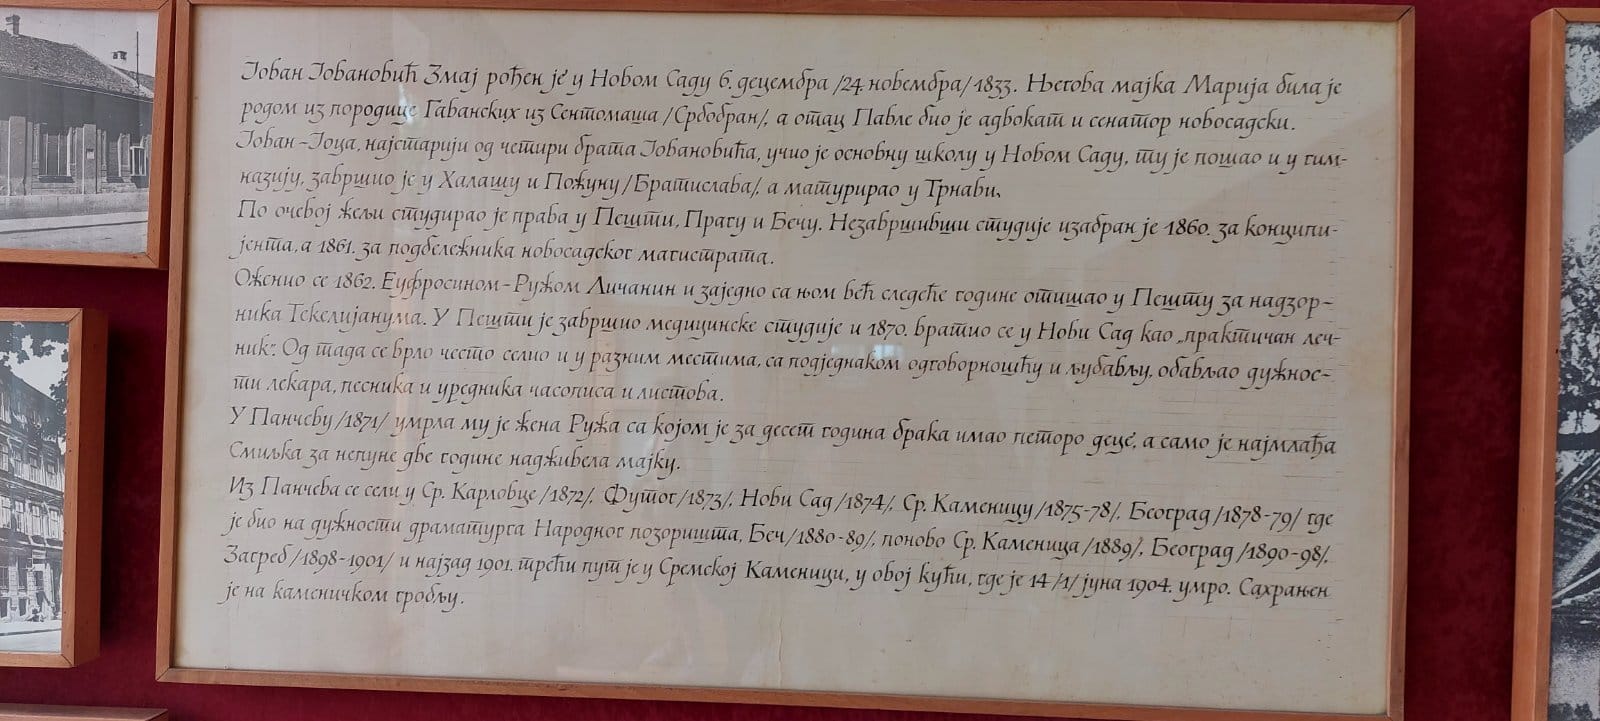 Јован Јовановић Змај рођен је у Новом Саду 6. децембра /24 новембра/ 1833. Његова мајка Марија била је
родом из породице Гаванских из Сентомаша /Србобран/, а отац Павле био је адвокат и сенатор новосадски.
Јован-Јоца, најстарији од четири брата Јовановића, учио је основну школу у Новом Саду, ту је пошао и у гим-
назију, завршио је у Халашу и Пожуну /Братислава/, а матурирао у Трнави.
По очевој жељи студирао је права у Пешти, Прагу и Бечу. Незавршивши студије изабран је 1860. за конципи-
јента, а 1861. за подбележника новосадског магистрата.
Оженио се 1862. Еуфросином-Ружом Личанин и заједно са њом већ следеће године отишао у Пешту за надзор-
ника Текелијанума. У Пешти је завршио медицинске студије и 1870. вратио се у Нови Сад као „практичан леч-
ник“. Од тада се врло често селио и у разним местима, са подједнаком одговорношћу и љубављу, обављао дужнос-
ти лекара, песника и уредника часописа и листова.
У Панчеву /1871/ умрла му је жена Ружа са којом је за десет година брака имао петоро деце, а само је најмлађа
Смиљка за непуне две године надживела мајку.
Из Панчева се сели у Ср. Карловце /1872/, Футог /1873/, Нови Сад /1874/, Ср. Каменицу /1875-78/, Београд /1878-79/ где
је био на дужности драматурга Народног позоришта, Беч /1880-89/, поново Ср. Каменица /1889/, Београд /1890-98/,
Загреб /1898-1901/ и најзад 1901. трећи пут је у Сремској Каменици, у овој кући, где је 14 /1/ јуна 1904. умро. Сахрањен
је на каменичком гробљу.